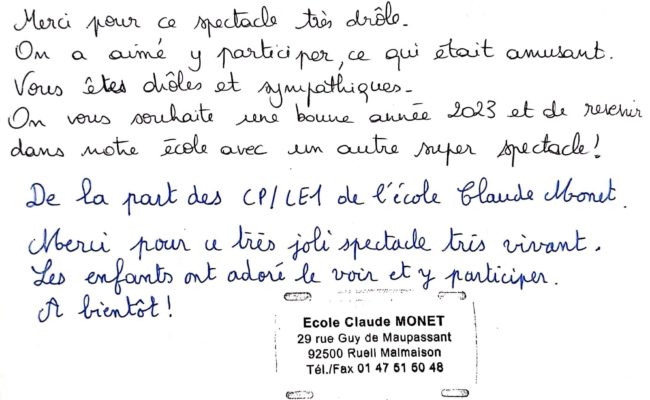 Merci pour ce spectacle très drôle.
On a aimé y participer, ce qui était amusant.
Vous êtes drôles et sympathiques.
On vous souhaite une bonne année 2023 et de revenir
dans notre école avec un autre super spectacle!
De la part des CP/CE1 de l'école Claude Monet.
Merci pour ce très joli spectacle très vivant.
Les enfants ont adoré le voir et y participer.
A bientôt!
Ecole Claude MONET
29 rue Guy de Maupassant
92500 Rueil Malmaison
Tél./Fax 01 47 51 50 48